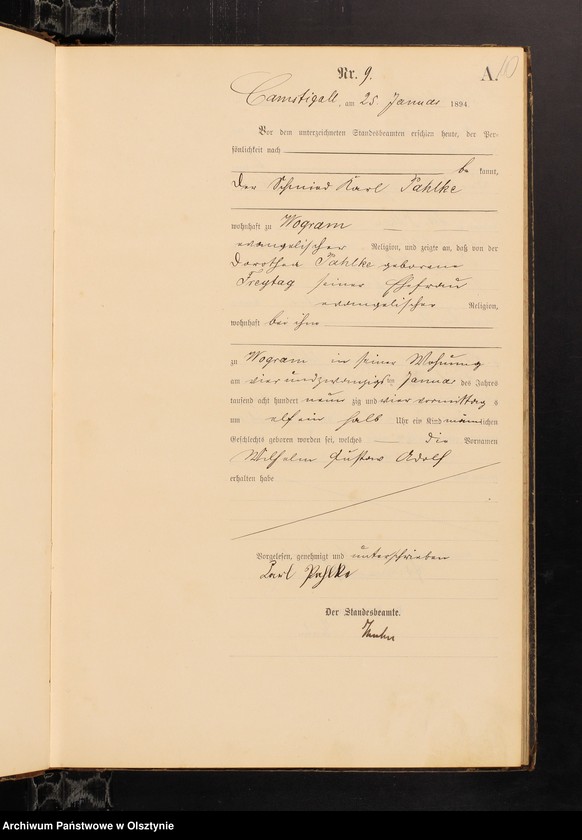 Nr. 9.
A.
10
Camstigall, am 25 Januar 1894.
Vor dem unterzeichneten Standesbeamten erschien heute, der Per-
sönlichkeit nach
be kannt,
der Schmied Karl Pahlke
wohnhaft zu Wogram
evangelischer Religion, und zeigte an, daß von der
Dorothea Pahlke geborene
Freytag seiner Ehefrau
evangelischer Religion,
wohnhaft bei ihm
zu Wogram in seiner Wohnung
am vier und zwanzigsten Januar des Jahres
tausend acht hundert neun zig und vier vormittag s
um elf ein halb Uhr ein Kind männlichen
Geschlechts geboren worden sei, welches die Vornamen
Wilhelm Gustav Adolf
erhalten habe
Vorgelesen, genehmigt und unterschrieben
Karl Pahlke
Der Standesbeamte.
Archiwum Państwowe w Olsztynie